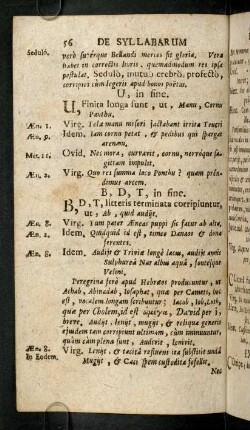 56 DE SYLLABARUM
Sedulò, verò superque Bellandi meriti sit gloria, Vera
habet in correctis libris, quemadmodum res ipsa
postulat. Sedulò, mutuò crebrò, profectò,
corripies cùm legeris apud bonos poëtas.
U, in fine.
U, Finita longa sunt, ut, Manu, Cornu
Panthu.
Æn. 1. Virg. Tela manu miseri jactabant irrita Teucri
Æn. 9. Idem, tam cornu petat, & pedibus qui spargat
arenam.
Met. 11. Ovid. Nec mora, curvavit, cornu, nervóque sagittam impulit,
Æn. 2. Virg. Quo res summa loco Panthu? quam prendimus
arcem,
B, D, T, in fine.
B, D, T, litteris terminata corripiuntur,
ut, Ab, quid audit.
Æn. 8. Virg. Tum pater Æneas puppi sic fatur ab alta,
Æn. 2. Idem, Quidquid id est, timeo Danaos & dona
ferentes.
Æn. 8. Idem, Audiit & Triviæ longè lacus, audiit amnis
Sulphureâ Nar albus aquâ, fontesque
Velini,
Peregrina ferè apud Hebræos producuntur, ut
Achab, Abinadab, Iosaphat, quæ per Camets, hoc
est, vocalem longam scribuntur; Iacob, Iob, Loth,
quæ per Cholem, id est David per i,
breve, Audit, lenit, mugit, & reliqua generis
ejusdem tam corripiunt ultimam, cùm imminuuntur,
quàm cùm plena sunt, Audivit, lenivit,
Æn. 8. Virg. Leniit, & tacitâ refluens ita substitit undâ
In Eodem. Mugiit, & Caci spem custodita fefellit,
Nec